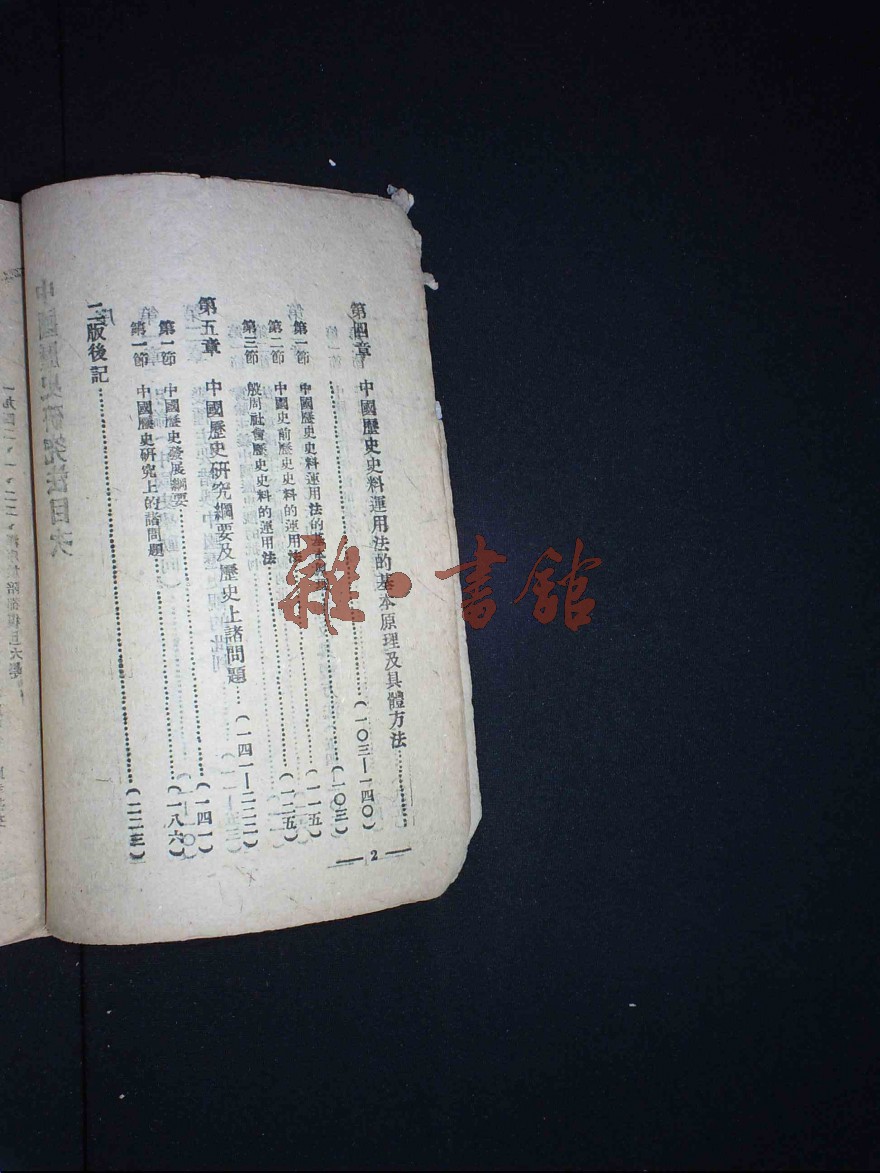 第四章 中國歷史史料運用法的基本原理及具體方法……(一〇三—一四〇)
第一節 中國歷史史料運用法的基本……(一〇三)
第二節 中國史前歷史史料的運用法……(一一五)
第三節 殷周社會歷史史料的運用法……(一二五)
第五章 中國歷史研究綱要及歷史上諸問題…(一四一—二二二)
第一節 中國歷史發展綱要……(一四一)
第一節 中國歷史研究上的諸問題……(一八六)
二版後記……(二二三)
— 2 —
雜·書館